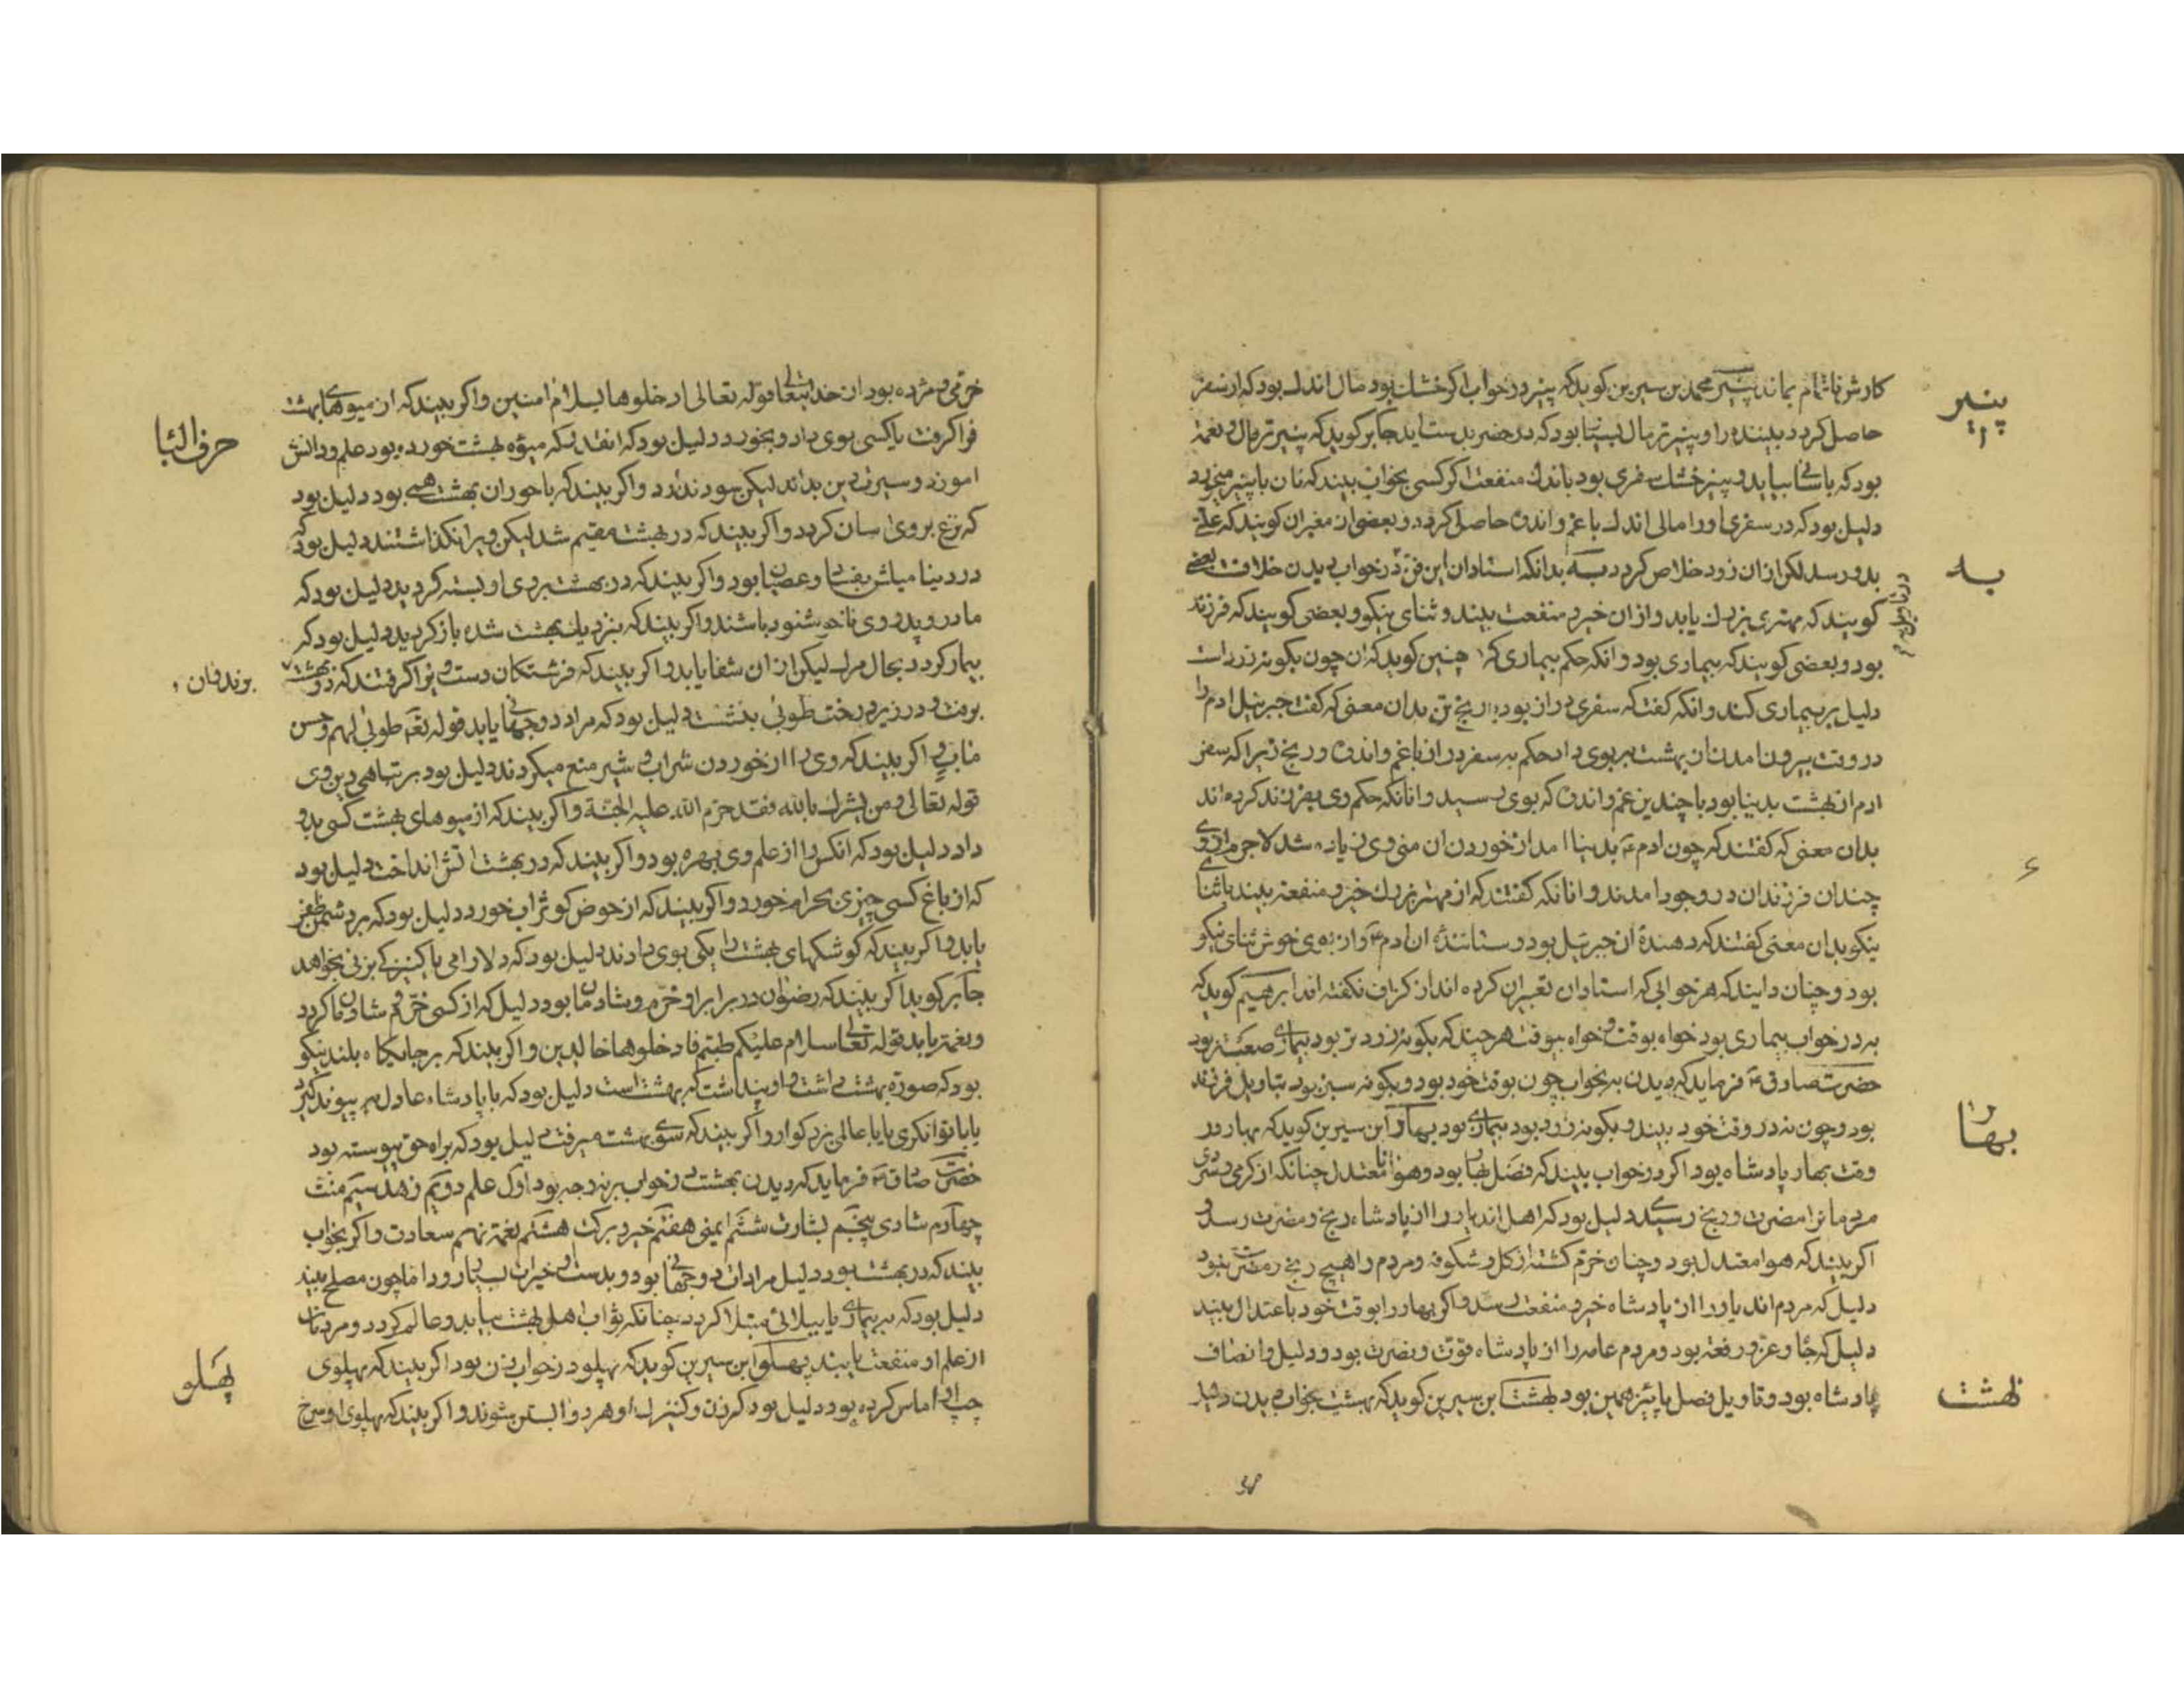 پنیر
کارش ناتمام بماند پنیر محمد بن سیرین کوید که پنیر در خواب اکر خشک بود مال اندک بود که از سفر
حاصل کردد بیننده را و پنیر تر مال بسیار بود که در حضر بدست اید جابر کوید که پنیر تر مال و نعمة
بود که باسانی بیابد و پنیر خشک سفری بود باندک منفعت اکر کسی بخواب بیند که نان با پنیر میخورد
دلیل بود که در سفری اورا مالی اندک با غم و اندوه حاصل کردد و بعضی از معبران کویند که علتی
به
بدو رسد لکن از ان زود خلاص کردد به بدانکه استادان این فن در خواب دیدن خلافت بعضی
کویند که بهتری بزرک یابد و از ان خیر و منفعت بیند و ثنای نیکو و بعضی کویند که فرزند
بود و بعضی کویند که بیماری بود و انکه حکم بیماری که چنین کوید که ان چون بکونه زرد است
دلیل بر بیماری کند و انکه کفت که سفری دراز بود با رنج تن بدان معنی که کفت جبرئیل ادم را
در وقت بیرون امدن از بهشت به بوی داد حکم به سفر دراز با غم و اندوه و رنج زیرا که سفر
ادم از بهشت بدینا بود با چندین غم و اندوه که بوی رسید و انانکه حکم وی بفرزند کرده اند
بدان معنی که کفتند که چون ادم بدنیا امد از خوردن ان منی وی زیاده شد لاجرم از وی
چندان فرزندان در وجود امدند و انانکه کفتند که از مهتر بزرک خیر و منفعة بیند با ثنای
نیکو بدان معنی کفتند که دهندهٔ ان جبرئیل بود و ستانندهٔ ان ادم و از بوی خوش ثنای نیکو
بود و چنان دانند که هر خوابی که استادان تعبیر ان کرده اند از کزاف نکفته اند ابرهیم کوید که
به در خواب بیماری بود خواه بوقت و خواه بیوقت هر چند که بکونه زردتر بود بیماری صعبتر بود
حضرت صادق فرماید که دیدن به بخواب چون بوقت خود بود و بکونه سبز بود بتاویل فرزند
بهار
بود و چون نه در وقت خود بیند و بکونه زرد بود بیماری بود بهار ابن سیرین کوید که بهار در
وقت بهار پادشاه بود اکر در خواب بیند که فصل بهار بود و هوا نا معتدل چنانکه از کرمی و سردی
مردمانرا مضرت و رنج رسیدی دلیل بود که اهل اندیار را از پادشاه رنج و مضرت رسد و
اکر بیند که هوا معتدل بود و چنان خرم کشته از کل و شکوفه و مردم را هیچ رنج و مضرت نبود
دلیل که مردم اندیار را از پادشاه خیر و منفعت رسد و اکر بهار را بوقت خود باعتدال بیند
دلیل که جاه و عز و رفعة بود و مردم عامه را از پادشاه قوت و نصرت بود و دلیل و انصاف
بهشت
پادشاه بود و تاویل فصل پائیز همین بود بهشت ابن سیرین کوید که بهشت بخواب دیدن دلیل
38
خرمی و مژده بود از خدایتعالی قوله تعالی ادخلوها بسلام امنین و اکر بیند که از میوهای بهشت
حرف البا
فرا کرفت یا کسی بوی داد و بخورد دلیل بود که انقدر که میوه بهشت خورده بود علم و دانش
اموزد و سیرت دین بداند لیکن سود ندارد و اکر بیند که با حوران بهشت همی بود دلیل بود
که نزع بر وی اسان کردد و اکر بیند که در بهشت مقیم شد لیکن ویرا نکذاشتند دلیل بود که
در دینا میلش بفساد و عصیان بود و اکر بیند که در بهشت بروی او بسته کردید دلیل بود که
مادر و پدر وی ناخوشنود باشند و اکر بیند که بنزدیک بهشت شد باز کردید دلیل بود که
بیمار کردد بحال مرک لیکن از ان شفا یابد و اکر بیند که فرشتکان دست وی فرا کرفتند که در بهشت
برفت و در زیر درخت طوبی بنشست دلیل بود که مراد دوجهانی یابد قوله تعالی طوبی لهم و حسن
ماب و اکر بیند که وی را از خوردن شراب و شیر منع میکردند دلیل بود بر تباهی دین وی
قوله تعالی و من یشرک بالله فقد حرم الله علیه الجنة و اکر بیند که از میوهای بهشت کسی بدو
داد دلیل بود که انکس را از علم وی بهره بود و اکر بیند که در بهشت اتش انداخت دلیل بود
که از باغ کسی چیزی بحرام خورد و اکر بیند که از حوض کوثر اب خورد دلیل بود که بر دشمن ظفر
یابد و اکر بیند که کوشکهای بهشت را یکی بوی دادند دلیل بود که دلارامی یا کنیزکی بزنی بخواهد
جابر کوید اکر بیند که رضوان در برابر او خرم و شادمان بود دلیل که از کسی خرم و شادمان کردد
و نعمتی یابد قوله تعالی سلام علیکم طبتم فادخلوها خالدین و اکر بیند که بر جایکاه بلند نیکو
بود که صورة بهشت داشت و او پنداشت که بهشت است دلیل بود که با پادشاه عادل پیوند کیرد
یا با توانکری یا با عالمی بزرکوار و اکر بیند که سوی بهشت میرفت دلیل بود که براه حق پیوسته بود
حضرت صادق فرماید که دیدن بهشت در خواب بر نه وجه بود اول علم دویم زهد سیم منت
چهارم شادی پنجم بشارت ششم ایمنی هفتم خیر و برکت هشتم نعمة نهم سعادت و اکر بخواب
بیند که در بهشت بود دلیل مرادات دوجهانی بود و بدست خیرات بسیار رود اما چون مصلح بیند
دلیل بود که ببیماری یا ببلائی مبتلا کردد چنانکه ثواب اهل بهشت بیابد و عالم کردد و مردمان
پهلو
از علم او منفعت یابند پهلو ابن سیرین کوید که پهلو در خواب زن بود اکر بیند که پهلوی
چپ او اماس کرده بود دلیل بود که زن و کنیزک او هر دو ابستن شوند و اکر بیند که پهلوی او سرخ